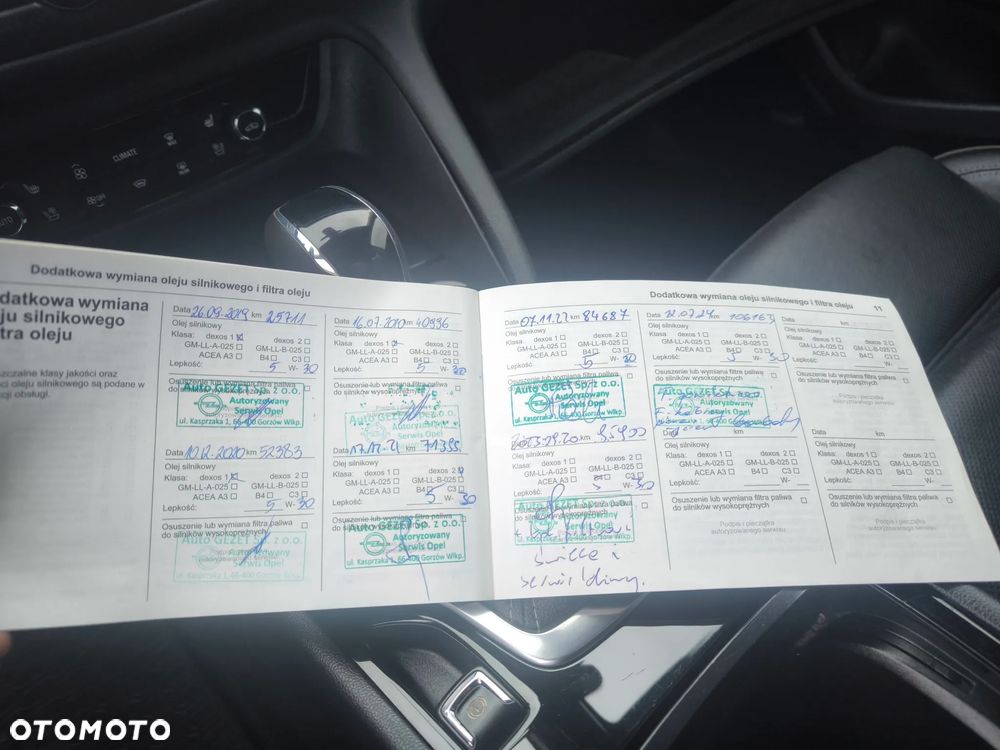 CLIMATE
AUTO
Dodatkowa wymiana oleju silnikowego i filtra oleju
datkowa wymiana
ju silnikowego
tra oleju
szczalne klasy jakości oraz
ci oleju silnikowego są podane w
cji obsługi.
Data 26.09.2019 km 25711
Olej silnikowy
Klasa: dexos 1 dexos 2
GM-LL-A-025 GM-LL-B-025
ACEA A3 B4 C3
Lepkość: 5 W- 30
Osuszenie lub wymiana filtra paliwa
do silników wysokoprężnych
Auto GEZET Sp. z o.o.
Autoryzowany
Serwis Opel
ul. Kasprzaka 1, 66-400 Gorzów Wlkp.
Data 10.12.2020 km 52383
Olej silnikowy
Klasa: dexos 1 dexos 2
GM-LL-A-025 GM-LL-B-025
ACEA A3 B4 C3
Lepkość: 5 W- 30
Osuszenie lub wymiana filtra paliwa
do silników wysokoprężnych
Auto GEZET Sp. z o.o.
Autoryzowany
Serwis Opel
ul. Kasprzaka 1, 66-400 Gorzów Wlkp.
Data 16.07.2020 km 40996
Olej silnikowy
Klasa: dexos 1 dexos 2
GM-LL-A-025 GM-LL-B-025
ACEA A3 B4 C3
Lepkość: 5 W- 30
Osuszenie lub wymiana filtra paliwa
do silników wysokoprężnych
Autoryzowany
Serwis Opel
km 71395
Olej silnikowy
Klasa: dexos 1 dexos 2
GM-LL-A-025 GM-LL-B-025
ACEA A3 B4 C3
Lepkość: 5 W- 30
Osuszenie lub wymiana filtra paliwa
do silników wysokoprężnych
Auto GEZET Sp. z o.o.
Autoryzowany
Serwis Opel
ul. Kasprzaka 1, 66-400 Gorzów Wlkp.
Dodatkowa wymiana oleju silnikowego i filtra oleju 11
Data 07.11.22 km 84687
Olej silnikowy
Klasa: dexos 1 dexos 2
GM-LL-A-025 GM-LL-B-025
ACEA A3 B4 C3
Lepkość: 5 W- 30
Osuszenie lub wymiana filtra paliwa
do silników wysokoprężnych
Auto GEZET Sp. z o.o.
Autoryzowany
Serwis Opel
ul. Kasprzaka 1, 66-400 Gorzów Wlkp.
km 95900
Olej silnikowy
Klasa: dexos 1 dexos 2
GM-LL-A-025 GM-LL-B-025
ACEA A3 B4 C3
Lepkość: 5 W- 30
Osuszenie lub wymiana filtra paliwa
do silników wysokoprężnych
Auto GEZET Sp. z o.o.
Autoryzowany
Serwis Opel
km 106163
Olej silnikowy
Klasa: dexos 1 dexos 2
GM-LL-A-025 GM-LL-B-025
ACEA A3 B4 C3
Lepkość: 5 W- 30
Osuszenie lub wymiana filtra paliwa
do silników wysokoprężnych
Autoryzowany
Serwis Opel
Data km
Olej silnikowy
Klasa: dexos 1 dexos 2
GM-LL-A-025 GM-LL-B-025
ACEA A3 B4 C3
Lepkość: W-
Osuszenie lub wymiana filtra paliwa
do silników wysokoprężnych
Podpis i pieczątka
autoryzowanego serwisu
Data km
Olej silnikowy
Klasa: dexos 1 dexos 2
GM-LL-A-025 GM-LL-B-025
ACEA A3 B4 C3
Lepkość: W-
Osuszenie lub wymiana filtra paliwa
do silników wysokoprężnych
Podpis i pieczątka
autoryzowanego serwisu
Data km
Olej silnikowy
Klasa: dexos 1 dexos 2
GM-LL-A-025 GM-LL-B-025
ACEA A3 B4 C3
Lepkość: W-
Osuszenie lub wymiana filtra paliwa
do silników wysokoprężnych
Podpis i pieczątka
autoryzowanego serwisu
OTOMOTO